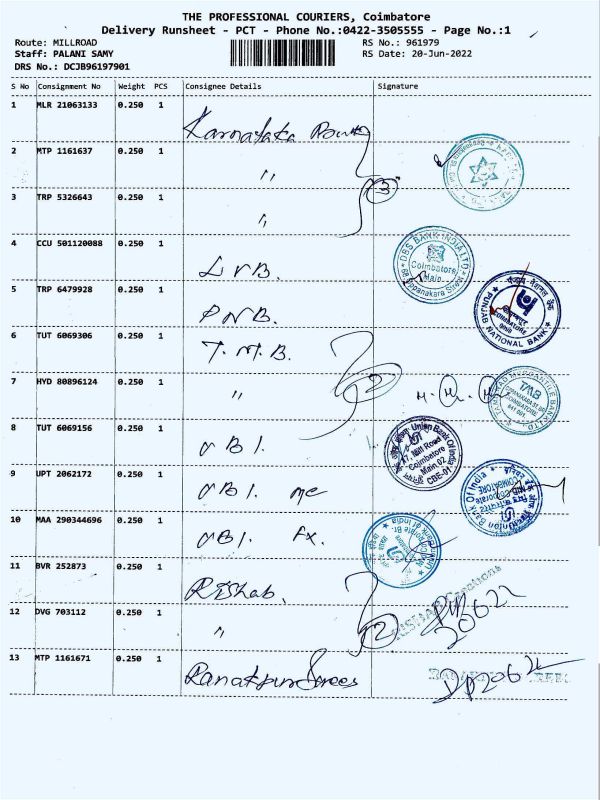 THE PROFESSIONAL COURIERS, Coimbatore
Delivery Runsheet - PCT - Phone No.:0422-3505555 - Page No.:1
Route: MILLROAD
RS No.: 961979
Staff: PALANI SAMY
RS Date: 20-Jun-2022
DRS No.: DCJB96197901
S No Consignment No Weight PCS Consignee Details Signature
1 MLR 21063133 0.250 1 Karnataka Bank
2 MTP 1161637 0.250 1 "
3 TRP 5326643 0.250 1 "
3
4 CCU 501120088 0.250 1 LVB.
DBS BANK INDIA LTD
Coimbatore
Main
5 TRP 6479928 0.250 1 PNB.
PUNJAB NATIONAL BANK
COIMBATORE
6 TUT 6069306 0.250 1 T.M.B.
7 HYD 80896124 0.250 1 "
2
TMB
COIMBATORE
8 TUT 6069156 0.250 1 UBI.
Union Bank Of India
Mill Road
Coimbatore
Main 02
CBE-01
9 UPT 2062172 0.250 1 UBI. mc
Union Bank Of India
10 MAA 290344696 0.250 1 UBI. Fx.
11 BVR 252873 0.250 1 Rishab.
12 DVG 703112 0.250 1 "
2
20622
13 MTP 1161671 0.250 1 Ranakpur Sarees
20622